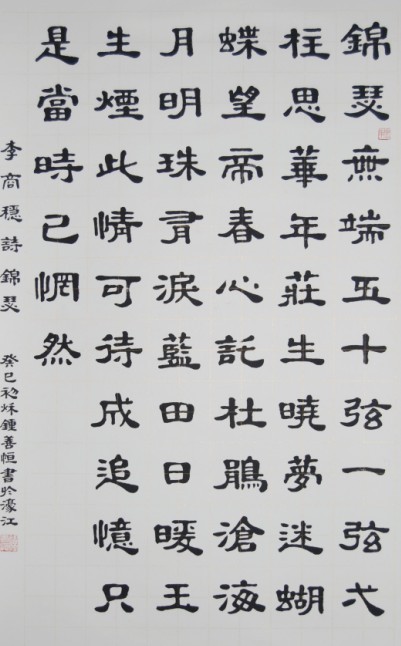 錦瑟無端五十弦一弦弌
柱思華年莊生曉夢迷蝴
蝶望帝春心託杜鵑滄海
月明珠有淚藍田日暖玉
生煙此情可待成追憶只
是當時已惘然
李商隱詩錦瑟
癸巳初秋鍾善恒書於濠江